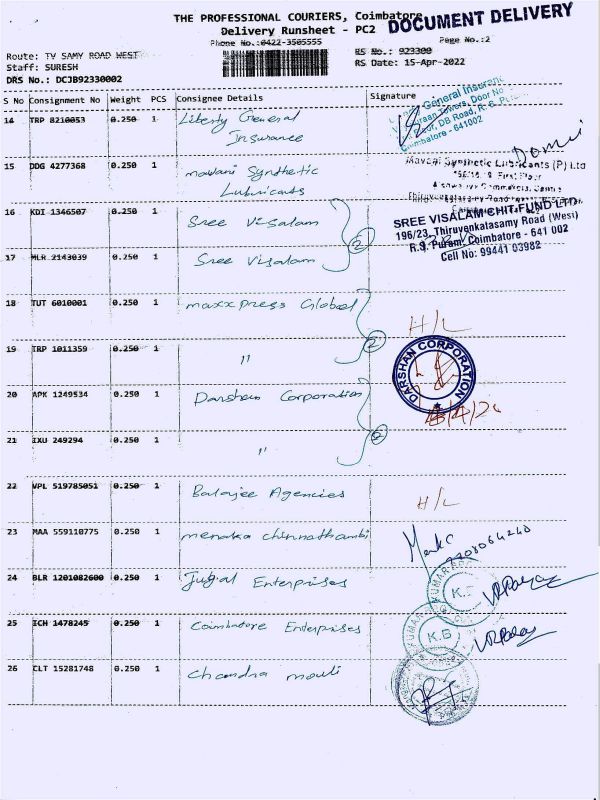 THE PROFESSIONAL COURIERS, Coimbatore
DOCUMENT DELIVERY
Delivery Runsheet - PC2
Phone No.:0422-3505555
Page No.:2
Route: TV SAMY ROAD WEST
RS No.: 923300
Staff: SURESH
RS Date: 15-Apr-2022
DRS No.: DCJB92330002
S No Consignment No Weight PCS Consignee Details Signature
14 TRP 8210053 0.250 1 Liberty General
Insurance
General Insurance
Towers, Door No
DB Road, R. S.
Coimbatore - 641002
15 DDG 4277368 0.250 1 mavani Synthetic
Lubricants
Mavani Synthetic Lubricants (P) Ltd
First Floor
16 KDI 1346507 0.250 1 Sree Visalam
2
SREE VISALAM CHIT FUND LTD.
196/23, Thiruvenkatasamy Road (West)
R.S. Puram, Coimbatore - 641 002
Cell No: 99441 03982
17 MLR 2143039 0.250 1 Sree Visalam
18 TUT 6010001 0.250 1 maxxpress Global
H/L
2
19 TRP 1011359 0.250 1 "
DARSHAN CORPORATION
20 APK 1249534 0.250 1 Darshan Corporation
2
21 IXU 249294 0.250 1 "
22 VPL 519785051 0.250 1 Balajee Agencies H/L
23 MAA 559110775 0.250 1 menaka chinnathambi
24 BLR 1201082600 0.250 1 Jugal Enterprises
25 ICH 1478245 0.250 1 Coimbatore Enterprises
K.B
26 CLT 15281748 0.250 1 Chandra mouli